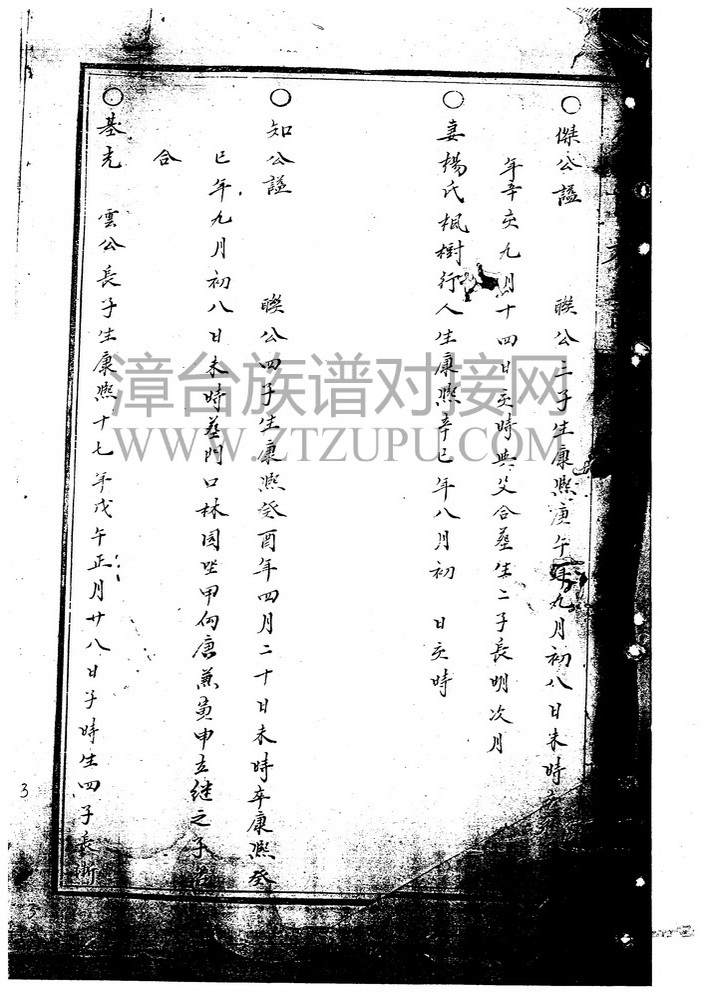 ○傑公諡 聯公三子生康熙庚午年九月初八日未時
年辛亥九月十四日亥時與父合葬生二子長明次月
○妻楊氏楓樹行人生康熙辛巳年八月初 日亥時
○知公諡 聯公四子生康熙癸酉年四月二十日未時卒康熙癸
巳年九月初八日未時葬門口林園坐甲向唐兼寅申立繼之子
合
○基光 雲公長子生康熙十七年戊午正月廿八日子時生四子長
漳台族谱对接网
WWW.ZTZUPU.COM
3